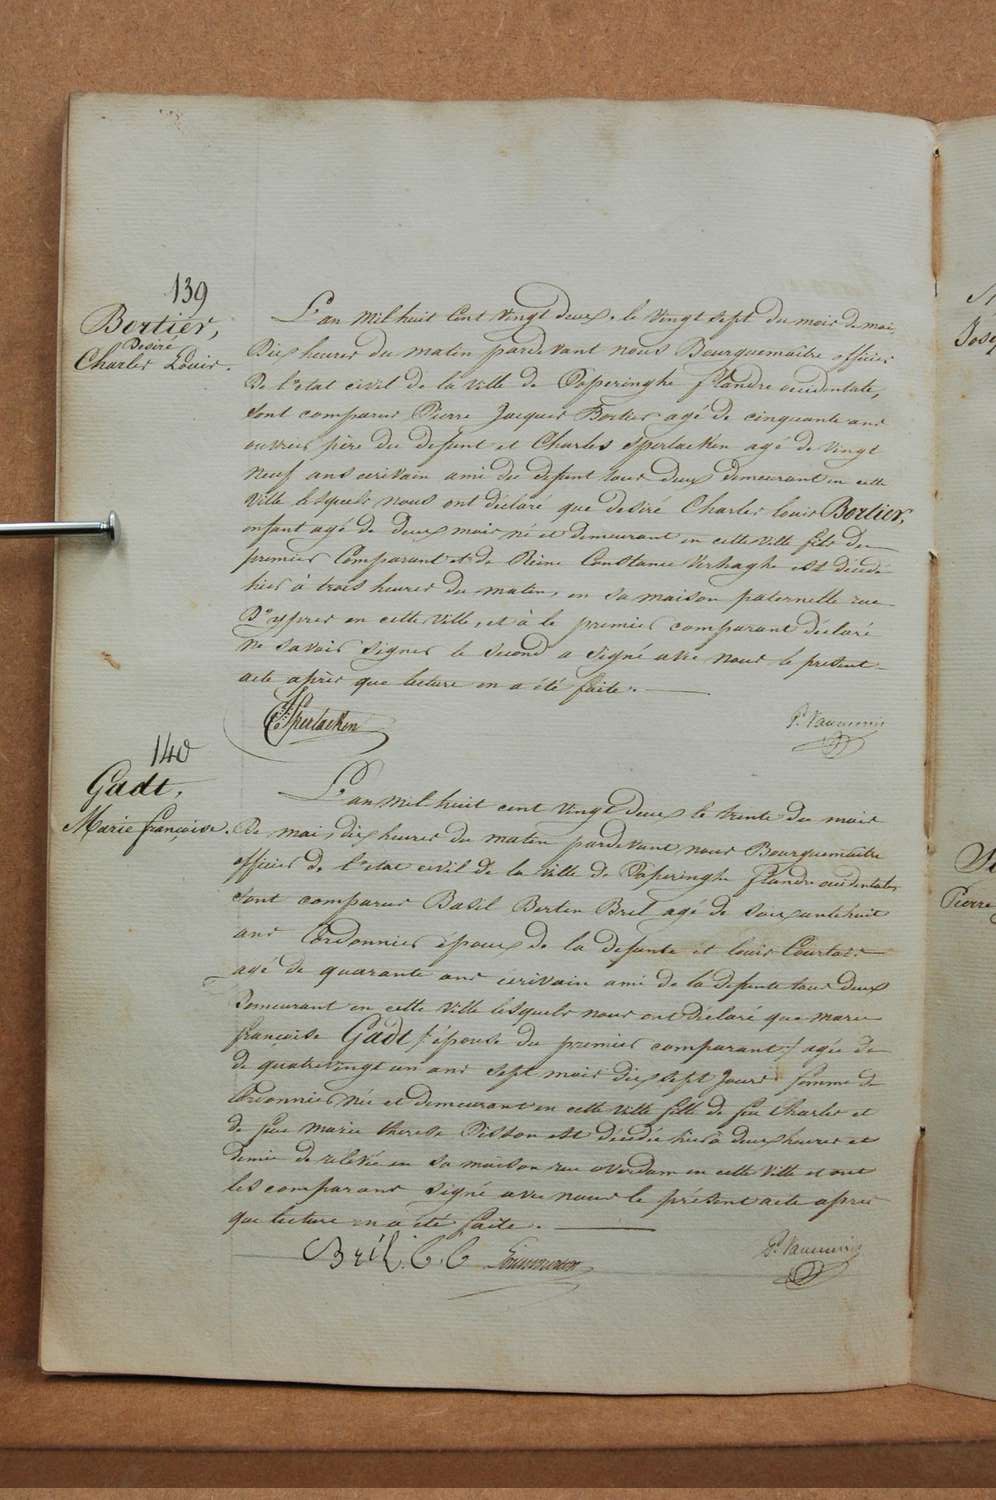 139
Bortier,
Desiré
Charles Louis.
L'an mil huit cent vingt deux, le vingt sept du mois de mai,
dix heures du matin pardevant nous Bourguemaitre officier
de l'etat civil de la ville de Poperinghe flandre occidentale,
sont comparus Pierre Jacques Bortier agé de cinquante ans
ouvrier père du defunt et Charles Sperlaeken agé de vingt
neuf ans ecrivain ami du defunt tous deux demeurant en cette
ville lesquels nous ont déclaré que desiré Charles louis Bortier,
enfant agé de deux mois né et demeurant en cette ville fils du
premier comparant et de Reine Constance Verhaghe est décédé
hier à trois heures du matin, en sa maison paternelle rue
d'ypres en cette ville, et à le premier comparant déclaré
ne savoir signer le second a signé avec nous le present
acte après que lecture en a été faite.
Sperlaeken
140
Gadt,
Marie françoise.
L'an mil huit cent vingt deux le trente du mois
de mai, dix heures du matin pardevant nous Bourguemaitre
officier de l'etat civil de la ville de Poperinghe flandre occidentale,
sont comparus Basil Bertin Bril agé de soixante huit
ans Cordonnier époux de la defunte et louis
agé de quarante ans écrivain ami de la defunte tous deux
demeurant en cette ville lesquels nous ont déclaré que marie
françoise Gadt /: épouse du premier comparant :/ agée de
de quatrevingt un ans sept mois dix sept jours femme de
Cordonnier née et demeurant en cette ville fille de feu Charles et
de feue marie therese est décédée hier à deux heures et
demie de relevée en sa maison rue overdam en cette ville et ont
les comparans signé avec nous le présent acte apres
que lecture en a été faite.
Bril. C. C